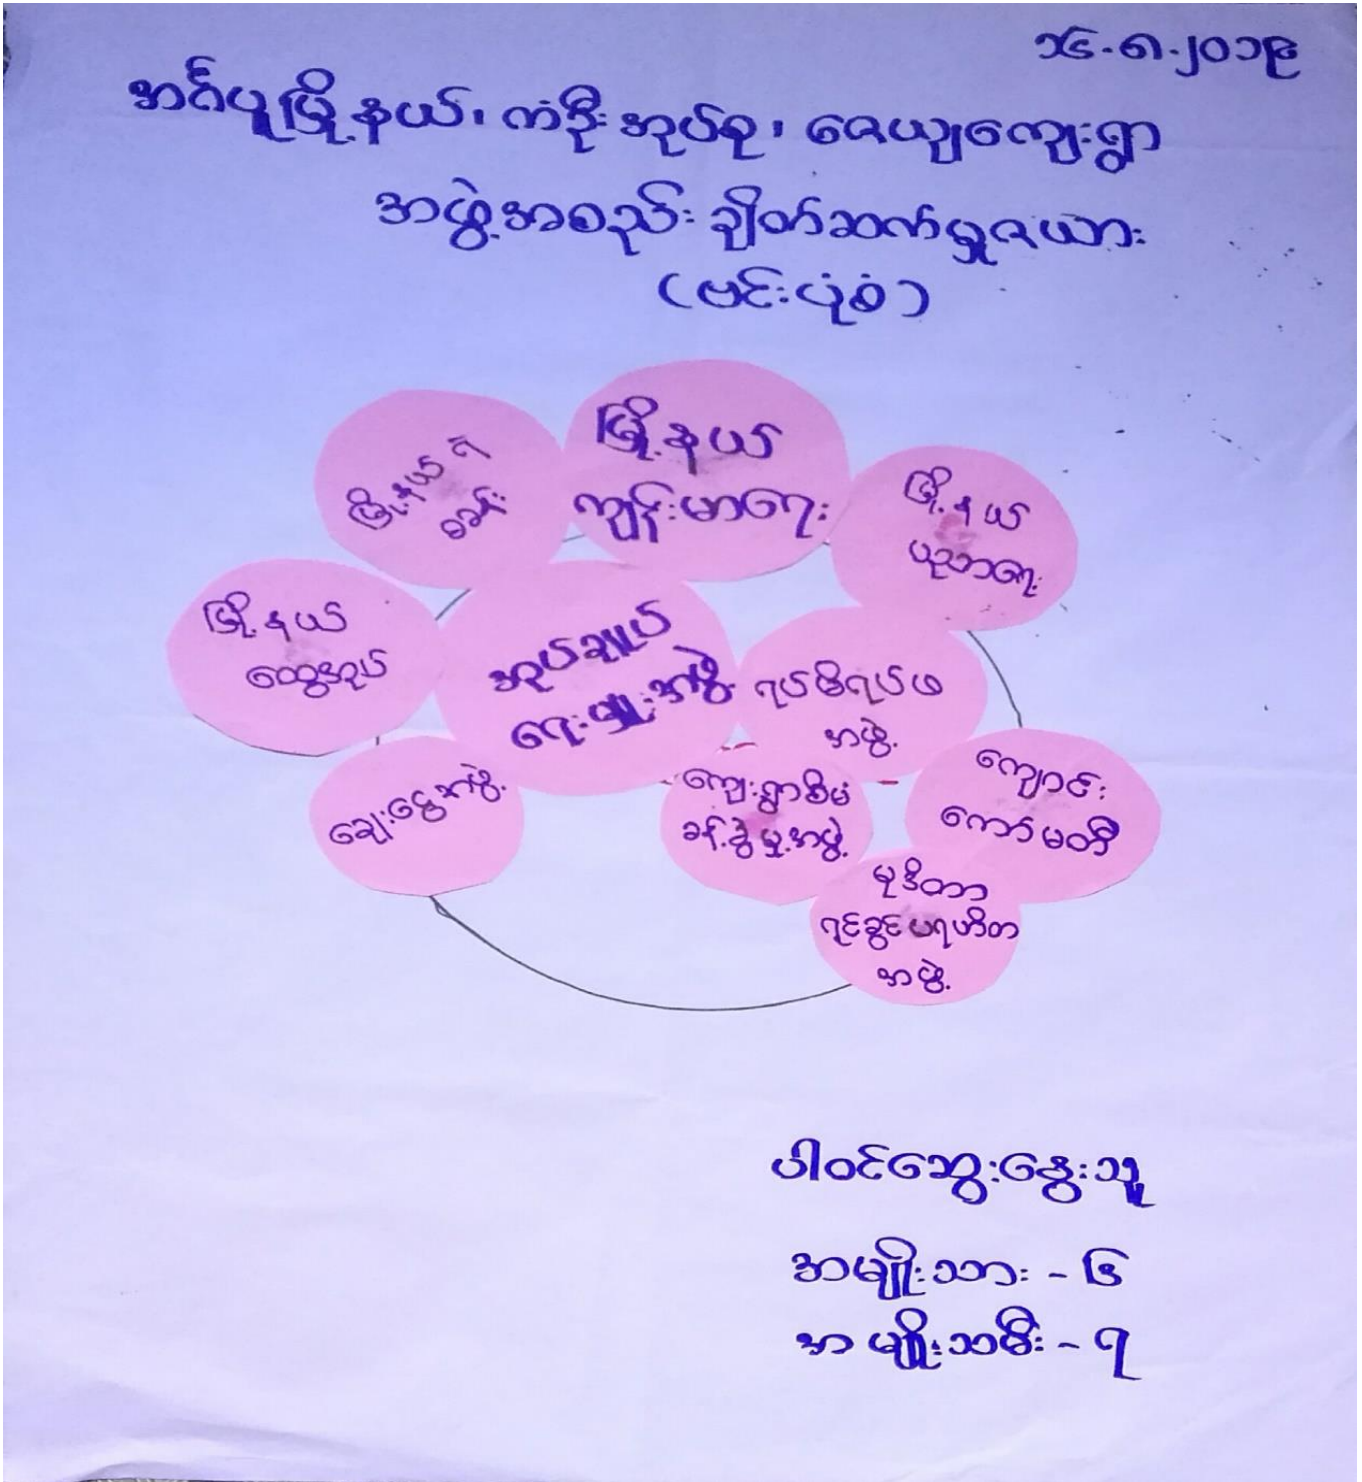 ၁၆-၈-၂၀၁၉
အင်္ဂပူမြို့နယ်၊ ကံဦးအုပ်စု၊ ဇေယျကျေးရွာ
အဖွဲ့အစည်း ချိတ်ဆက်မှုဇယား
(ဗင်းပုံစံ)
မြို့နယ် ရဲ
စခန်း
မြို့နယ်
ကျန်းမာရေး
မြို့နယ်
ပညာရေး
မြို့နယ်
ထွေအုပ်
အုပ်ချုပ်
ရေးမှူးအဖွဲ့
ရပ်မိရပ်ဖ
အဖွဲ့
ချေးငွေအဖွဲ့
ကျေးရွာစီမံ
ခန့်ခွဲမှု့အဖွဲ့
ကျောင်း
ကော်မတီ
မုဒိတာ
ရင်ခွင်ပရဟိတ
အဖွဲ့
ပါဝင်ဆွေးနွေးသူ
အမျိုးသား - ၆
အမျိုးသမီး - ၇